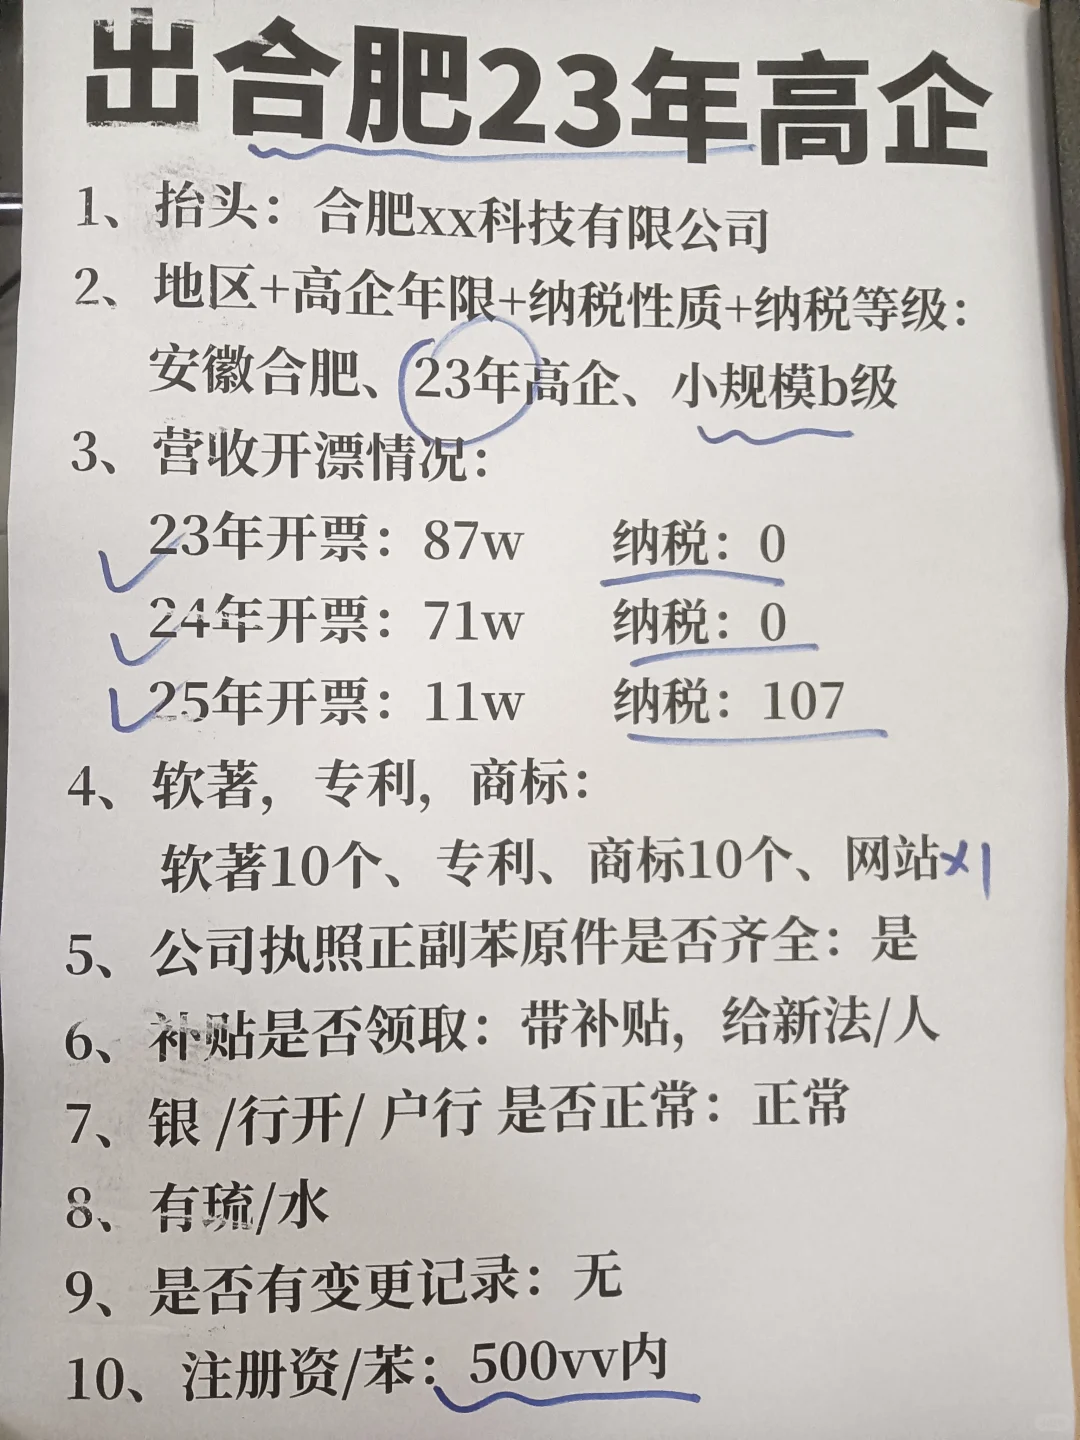 出合肥23年高企
1、抬头：合肥xx科技有限公司
2、地区+高企年限+纳税性质+纳税等级：
安徽合肥、23年高企、小规模b级
3、营收开漂情况：
23年开票：87w 纳税：0
24年开票：71w 纳税：0
25年开票：11w 纳税：107
4、软著，专利，商标：
软著10个、专利、商标10个、网站x1
5、公司执照正副苯原件是否齐全：是
6、补贴是否领取：带补贴，给新法/人
7、银 /行开/ 户行 是否正常：正常
8、有琉/水
9、是否有变更记录：无
10、注册资/苯：500vv内